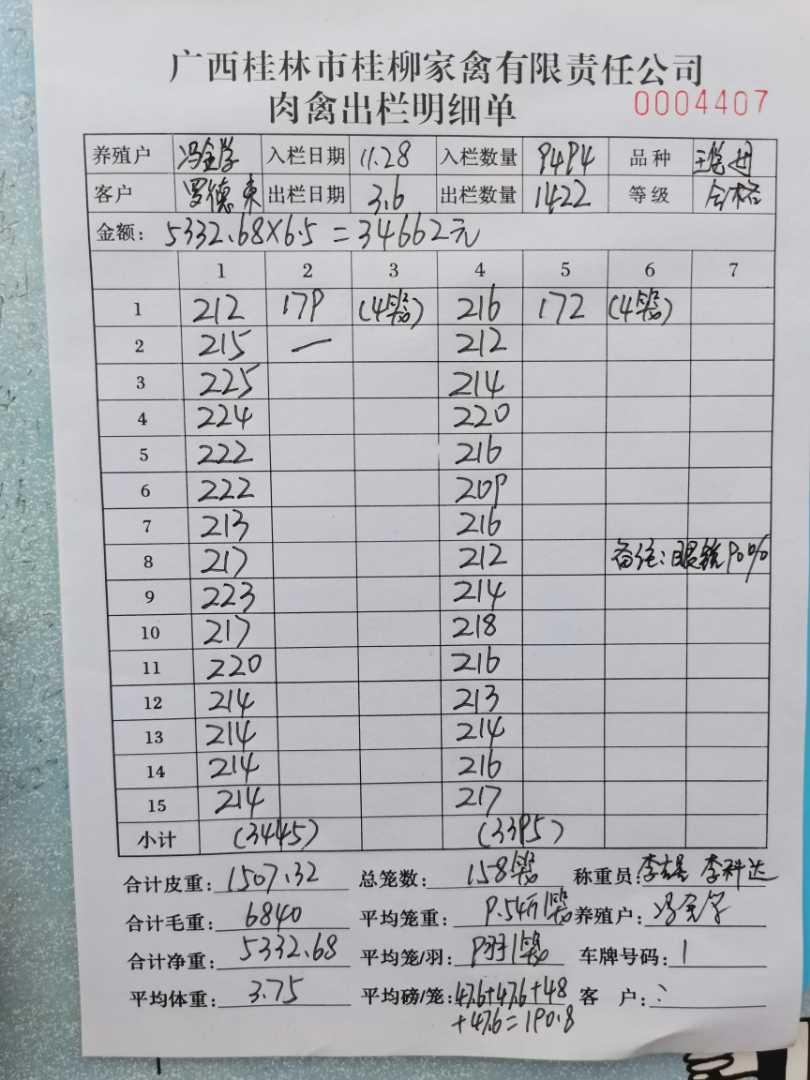 广西桂林市桂柳家禽有限责任公司
肉禽出栏明细单
0004407
养殖户 入栏日期 11.28 入栏数量 9494 品种
客户 罗德来 出栏日期 3.6 出栏数量 1422 等级 合格
金额: 5332.68×6.5=34662元
1 2 3 4 5 6 7
1 212 179 (4笼) 216 172 (4笼)
2 215 — 212
3 225 214
4 224 220
5 222 216
6 222 209
7 213 216
8 217 212 备注:眼线90%
9 223 214
10 217 218
11 220 216
12 214 213
13 214 214
14 214 216
15 214 217
小计 (3445) (3395)
合计皮重: 1507.32 总笼数: 158笼 称重员: 李科达
合计毛重: 6840 平均笼重: 9.54斤/笼 养殖户:
合计净重: 5332.68 平均笼/羽: 9羽/笼 车牌号码: 1
平均体重: 3.75 平均磅/笼: 47.6+47.6+48 客 户:
+47.6=190.8